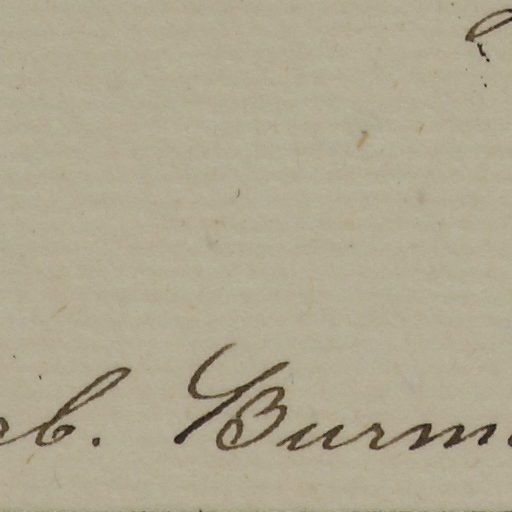 eb. Burm